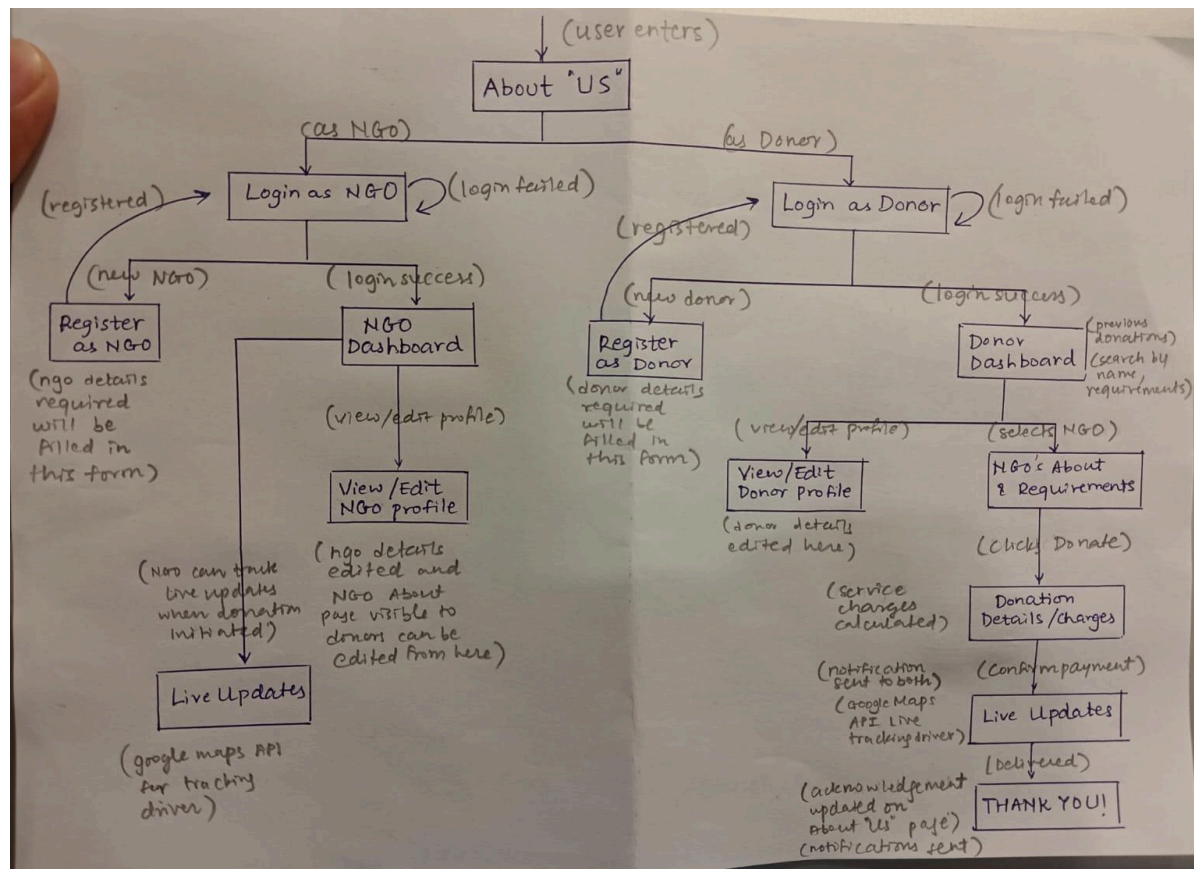 (user enters)
About "US"
(as NGO)
(as Donor)
Login as NGO
(login failed)
(registered)
Login as Donor
(login failed)
(registered)
(new NGO)
(login success)
(new donor)
(login success)
Register
as NGO
(ngo details
required
will be
filled in
this form)
NGO
Dashboard
(view/edit profile)
View/Edit
NGO profile
(ngo details
edited and
NGO About
page visible to
donors can be
edited from here)
(NGO can track
live updates
when donation
initiated)
Live Updates
(google maps API
for tracking
driver)
Register
as Donor
(donor details
required
will be
filled in
this form)
Donor
Dashboard
(previous
donations)
(search by
name,
requirements)
(view/edit profile)
(selects NGO)
View/Edit
Donor Profile
(donor details
edited here)
NGO's About
& Requirements
(Clicks Donate)
(service
charges
calculated)
Donation
Details/charges
(notification
sent to both)
(Confirm payment)
(Google Maps
API Live
tracking driver)
Live Updates
(Delivered)
(acknowledgement
updated on
About "Us" page)
(notifications sent)
THANK YOU!